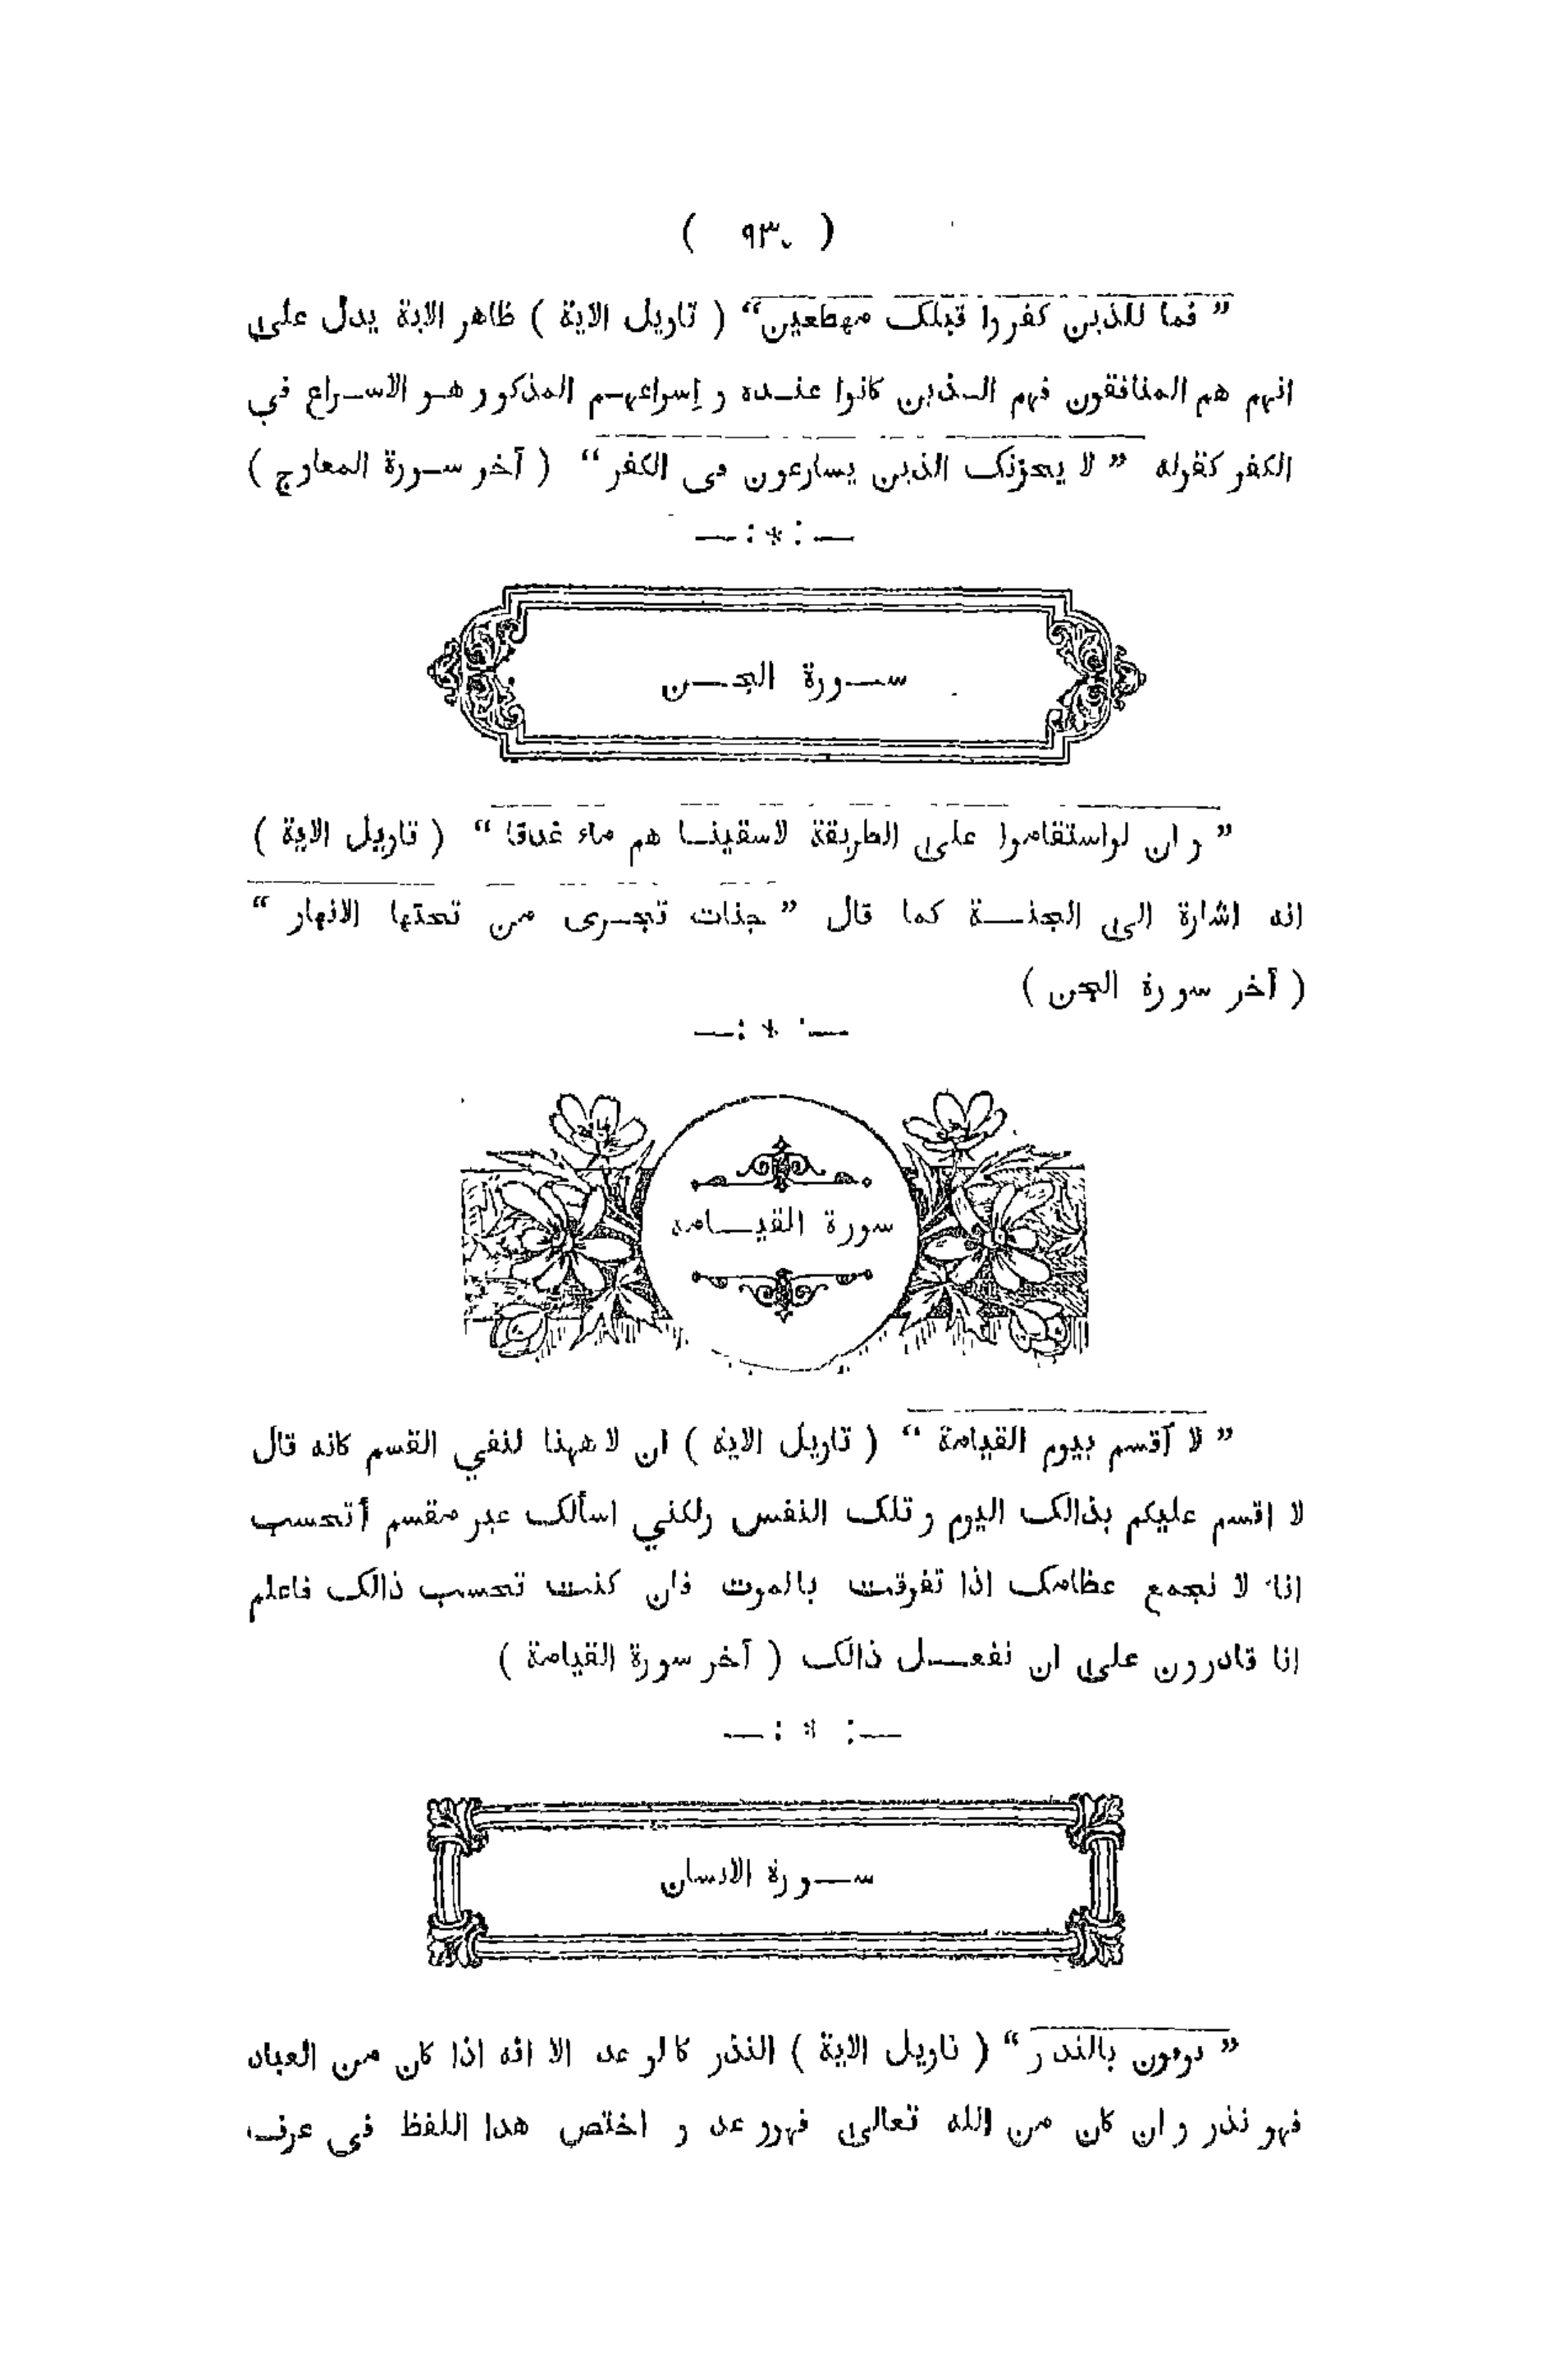 ( ٩٣ )
” فما للذين كفروا قبلک مهطعين “ ( تاويل الاية ) ظاهر الاية يدل على
انهم هم المنافقون فهم الـذين كانوا عنـده و إسراعهـم المذكور هـو الاسـراع في
الكفر كقوله ” لا يحزنک الذين يسارعون فى الكفر “ ( آخر سـورة المعارج )
—:*:—
سـورة الجـن
” و ان لواستقاموا على الطريقة لاسقينـا هم ماء غدقا “ ( تاويل الاية )
انه اشارة الى الجنـة كما قال ” جنات تجـرى من تحتها الانهار “
( آخر سورة الجن )
—: * :—
سورة القيـامة
” لا آقسم بيوم القيامة “ ( تاويل الاية ) ان لا ههنا لنفي القسم كانه قال
لا اقسم عليكم بذالک اليوم و تلک النفس ولكني اسألک غير مقسم أتحسب
انا لا نجمع عظامک اذا تفرقت بالموت فان كنت تحسب ذالک فاعلم
انا قادرون على ان نفعـل ذالک ( آخر سورة القيامة )
—: * :—
سـورة الانسان
” يوفون بالنذر “ ( تاويل الاية ) النذر كالوعد الا انه اذا كان من العباد
فهو نذر و ان كان من الله تعالى فهو وعد و اختص هذا اللفظ فى عرف